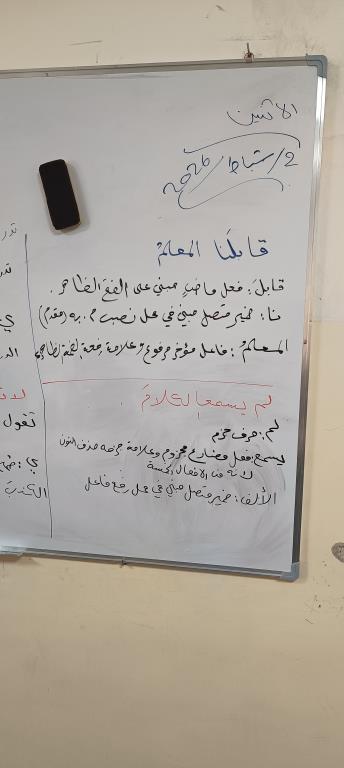 الاثنين
2/شباط/
قابلَنا المعلمُ
قابلَ: فعل ماضٍ مبني على الفتح الظاهر.
نا: ضمير متصل مبني في محل نصب م. به (مقدم)
المعلمُ: فاعل مؤخر مرفوع وعلامة رفعه الضمة الظاهرة
لم يسمعا الكلامَ.
لم: حرف جزم
يسمع: فعل مضارع مجزوم وعلامة جزمه حذف النون
لأنه من الأفعال الخمسة
الألف: ضمير متصل مبني في محل رفع فاعل
تقول